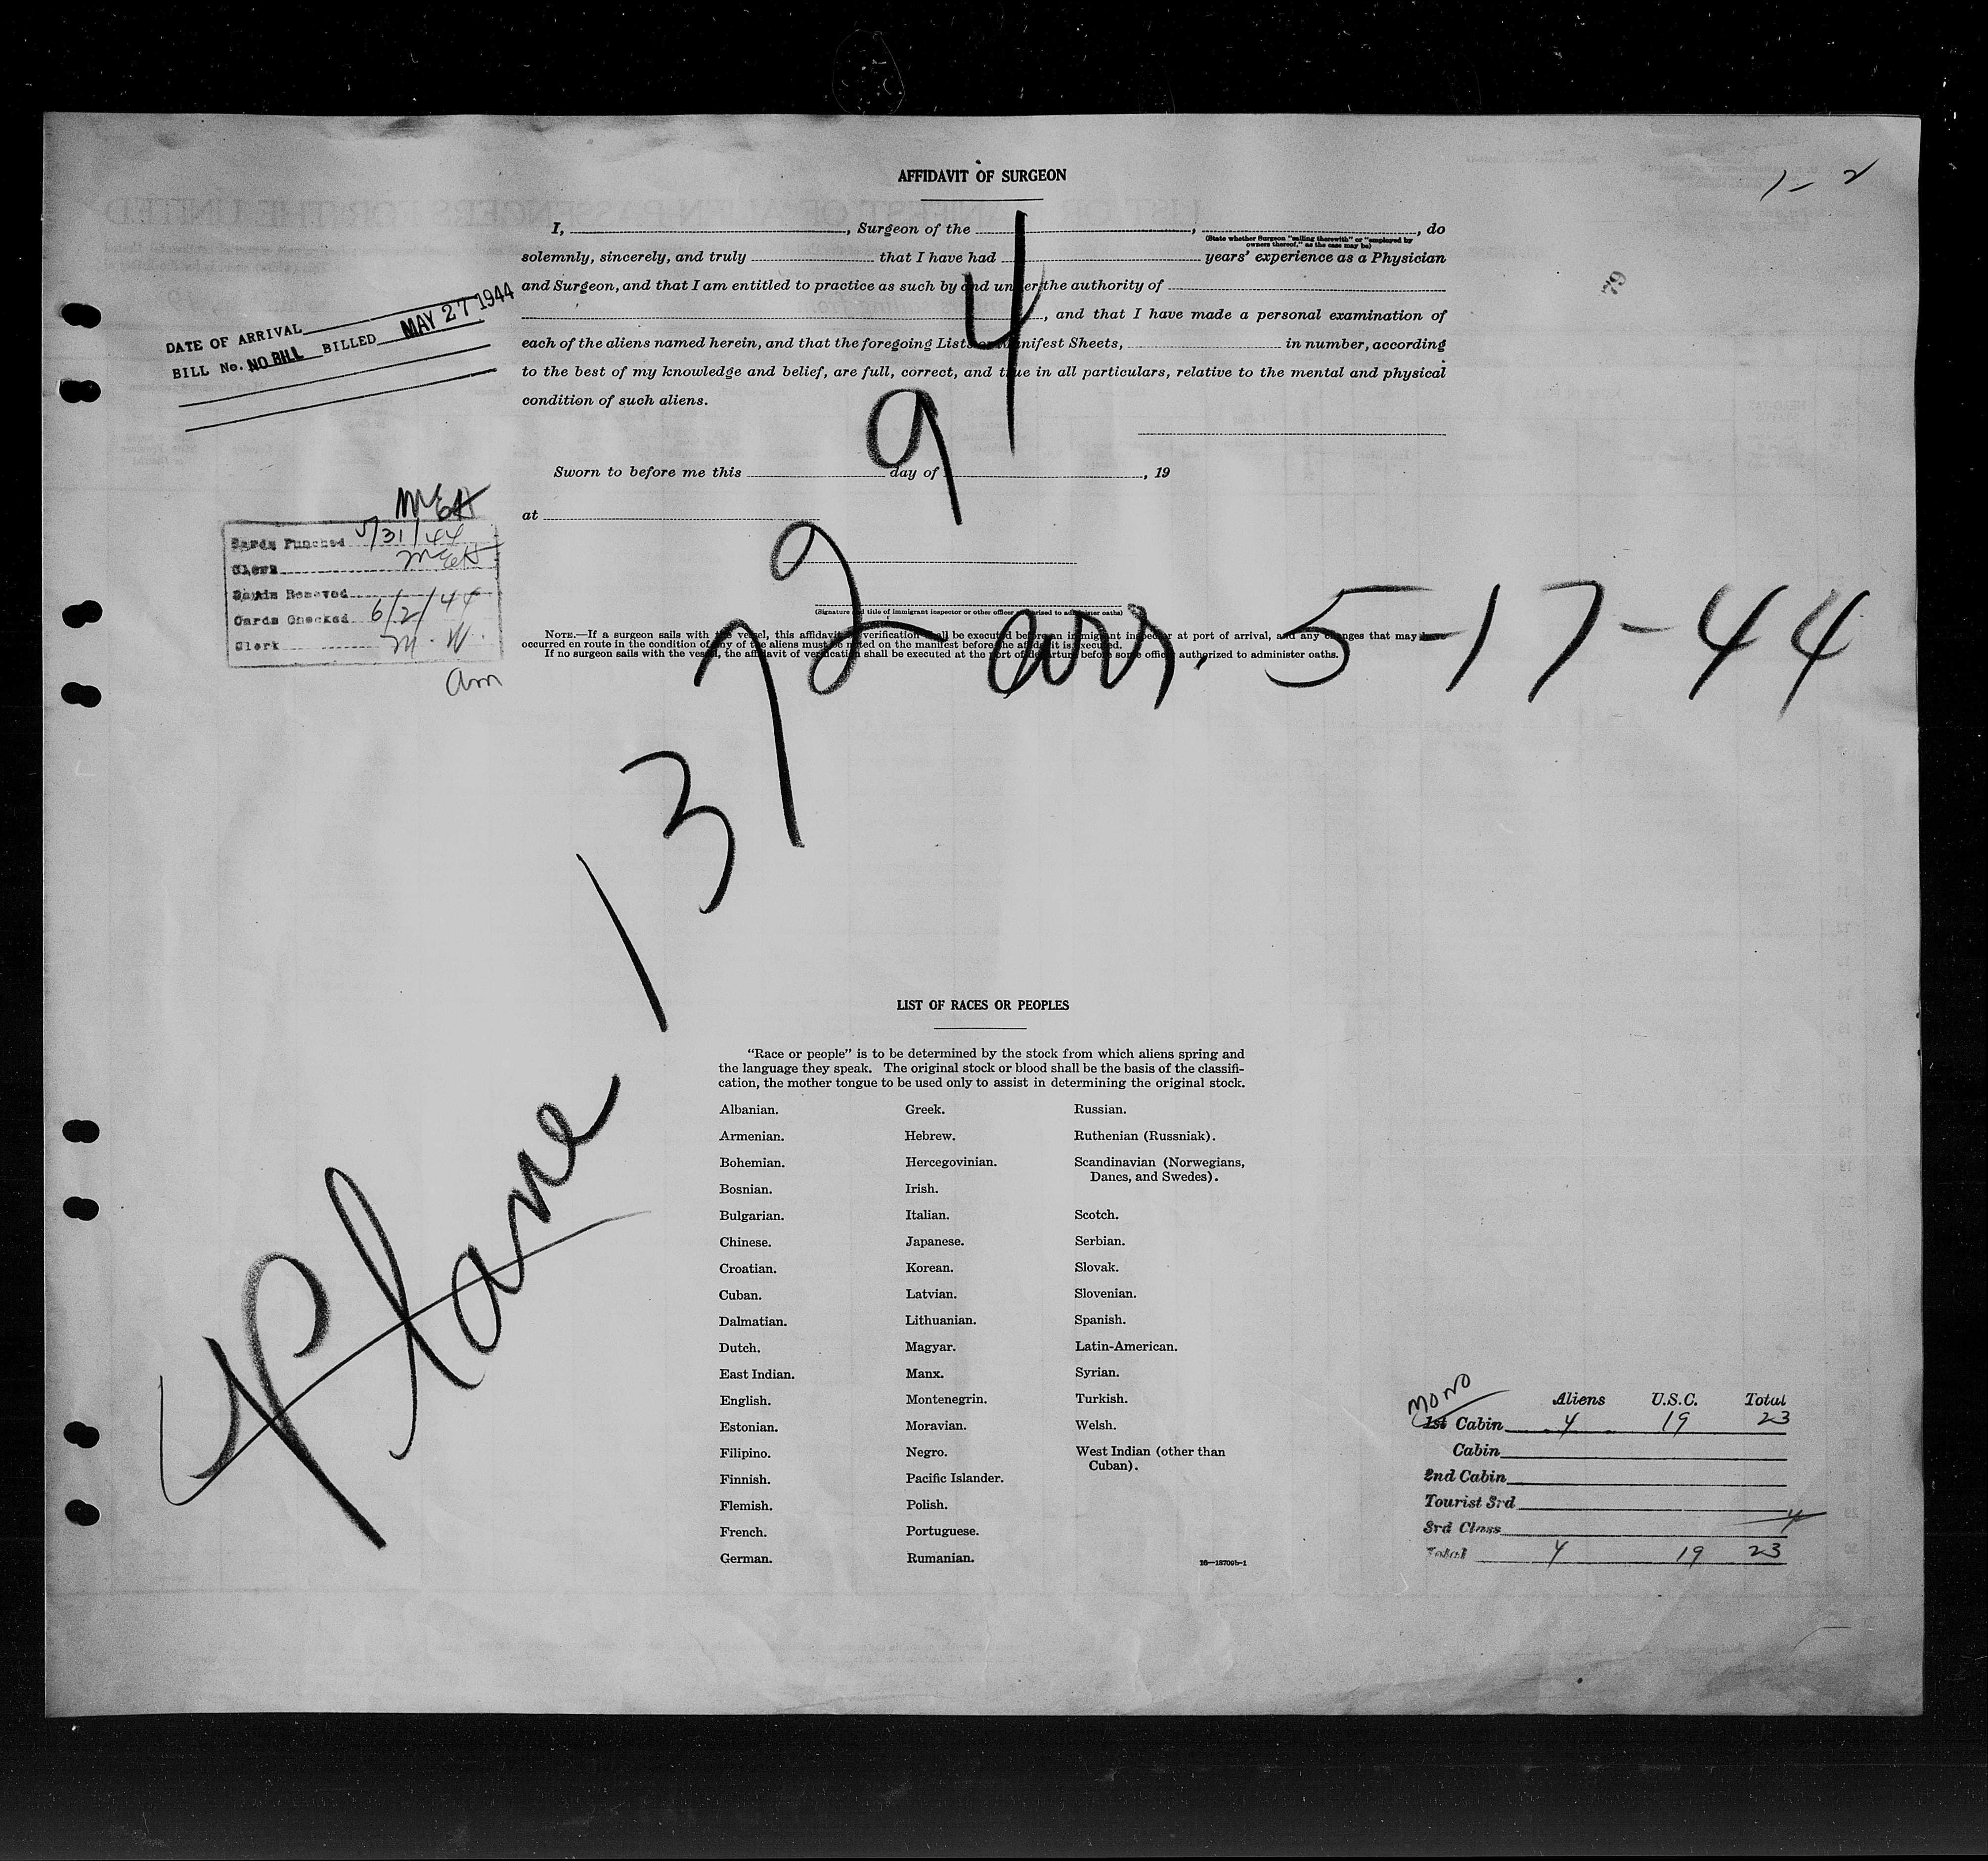 AFFIDAVIT OF SURGEON
1- 2
I, , Surgeon of the , , do
(State whether Surgeon "sailing therewith" or "employed by
owners thereof," as the case may be)
solemnly, sincerely, and truly that I have had years' experience as a Physician
and Surgeon, and that I am entitled to practice as such by and under the authority of
, and that I have made a personal examination of
each of the aliens named herein, and that the foregoing Lists or Manifest Sheets, in number, according
to the best of my knowledge and belief, are full, correct, and true in all particulars, relative to the mental and physical
condition of such aliens.
79
DATE OF ARRIVAL
BILL No. NO BILL BILLED MAY 27 1944
Sworn to before me this day of , 19
at
(Signature and title of immigrant inspector or other officer authorized to administer oaths)
NOTE.—If a surgeon sails with the vessel, this affidavit of verification shall be executed before an immigrant inspector at port of arrival, and any changes that may be
occurred en route in the condition of any of the aliens must be noted on the manifest before the affidavit is executed.
If no surgeon sails with the vessel, the affidavit of verification shall be executed at the port of departure before some officer authorized to administer oaths.
Cards Punched 5/31/44
Clerk
Cards Removed
Cards Checked 6/2/44
Clerk M. W.
am
Plane 137294
arr. 5-17-44
LIST OF RACES OR PEOPLES
"Race or people" is to be determined by the stock from which aliens spring and
the language they speak. The original stock or blood shall be the basis of the classifi-
cation, the mother tongue to be used only to assist in determining the original stock.
Albanian.
Armenian.
Bohemian.
Bosnian.
Bulgarian.
Chinese.
Croatian.
Cuban.
Dalmatian.
Dutch.
East Indian.
English.
Estonian.
Filipino.
Finnish.
Flemish.
French.
German.
Greek.
Hebrew.
Hercegovinian.
Irish.
Italian.
Japanese.
Korean.
Latvian.
Lithuanian.
Magyar.
Manx.
Montenegrin.
Moravian.
Negro.
Pacific Islander.
Polish.
Portuguese.
Rumanian.
Russian.
Ruthenian (Russniak).
Scandinavian (Norwegians,
Danes, and Swedes).
Scotch.
Serbian.
Slovak.
Slovenian.
Spanish.
Latin-American.
Syrian.
Turkish.
Welsh.
West Indian (other than
Cuban).
16—18700b-1
MONO
Aliens U.S.C. Total
1st Cabin 4 19 23
Cabin
2nd Cabin
Tourist 3rd
3rd Class 4
Total 4 19 23